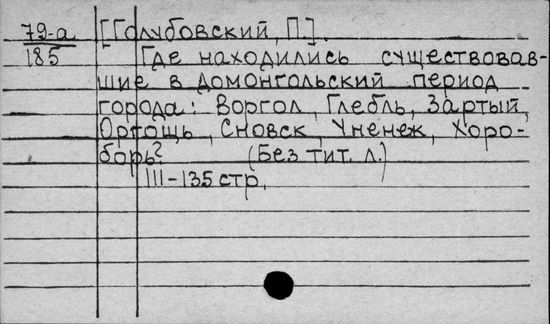 79-а [Голубовский, П.].
185 Где находились существовав-
шие в домонгольский период
города: Воргол, Глебль, Зартый,
Оргощь, Сновск, Уненеж, Хоро-
борь? (Без тит. л.)
111-135 стр.